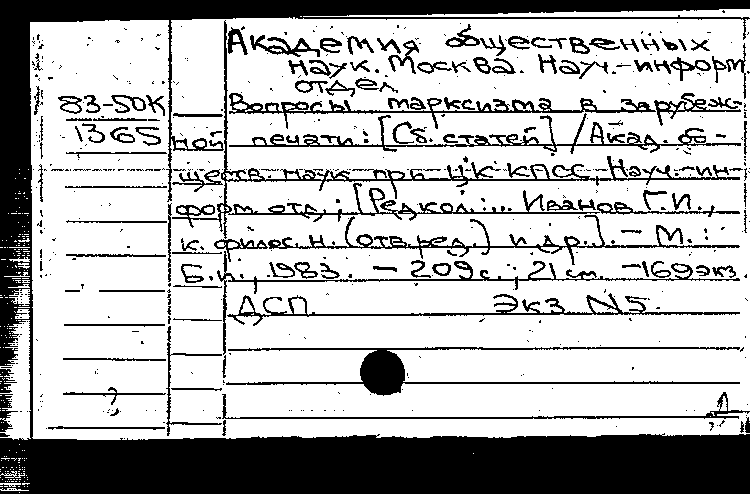 Академия общественных
наук. Москва. Науч.-информ.
отдел
83-50К Вопросы марксизма в зарубеж-
1365 ной печати: [Сб. статей] / Акад. об-
ществ. наук при ЦК КПСС, Науч.-ин-
форм. отд.; [Редкол.:.. Иванов Г.И.,
к. филос. н. (отв. ред.) и др.]. - М.:
Б.и., 1983. - 209 с.; 21 см. - 169 экз.
ДСП. Экз N5.